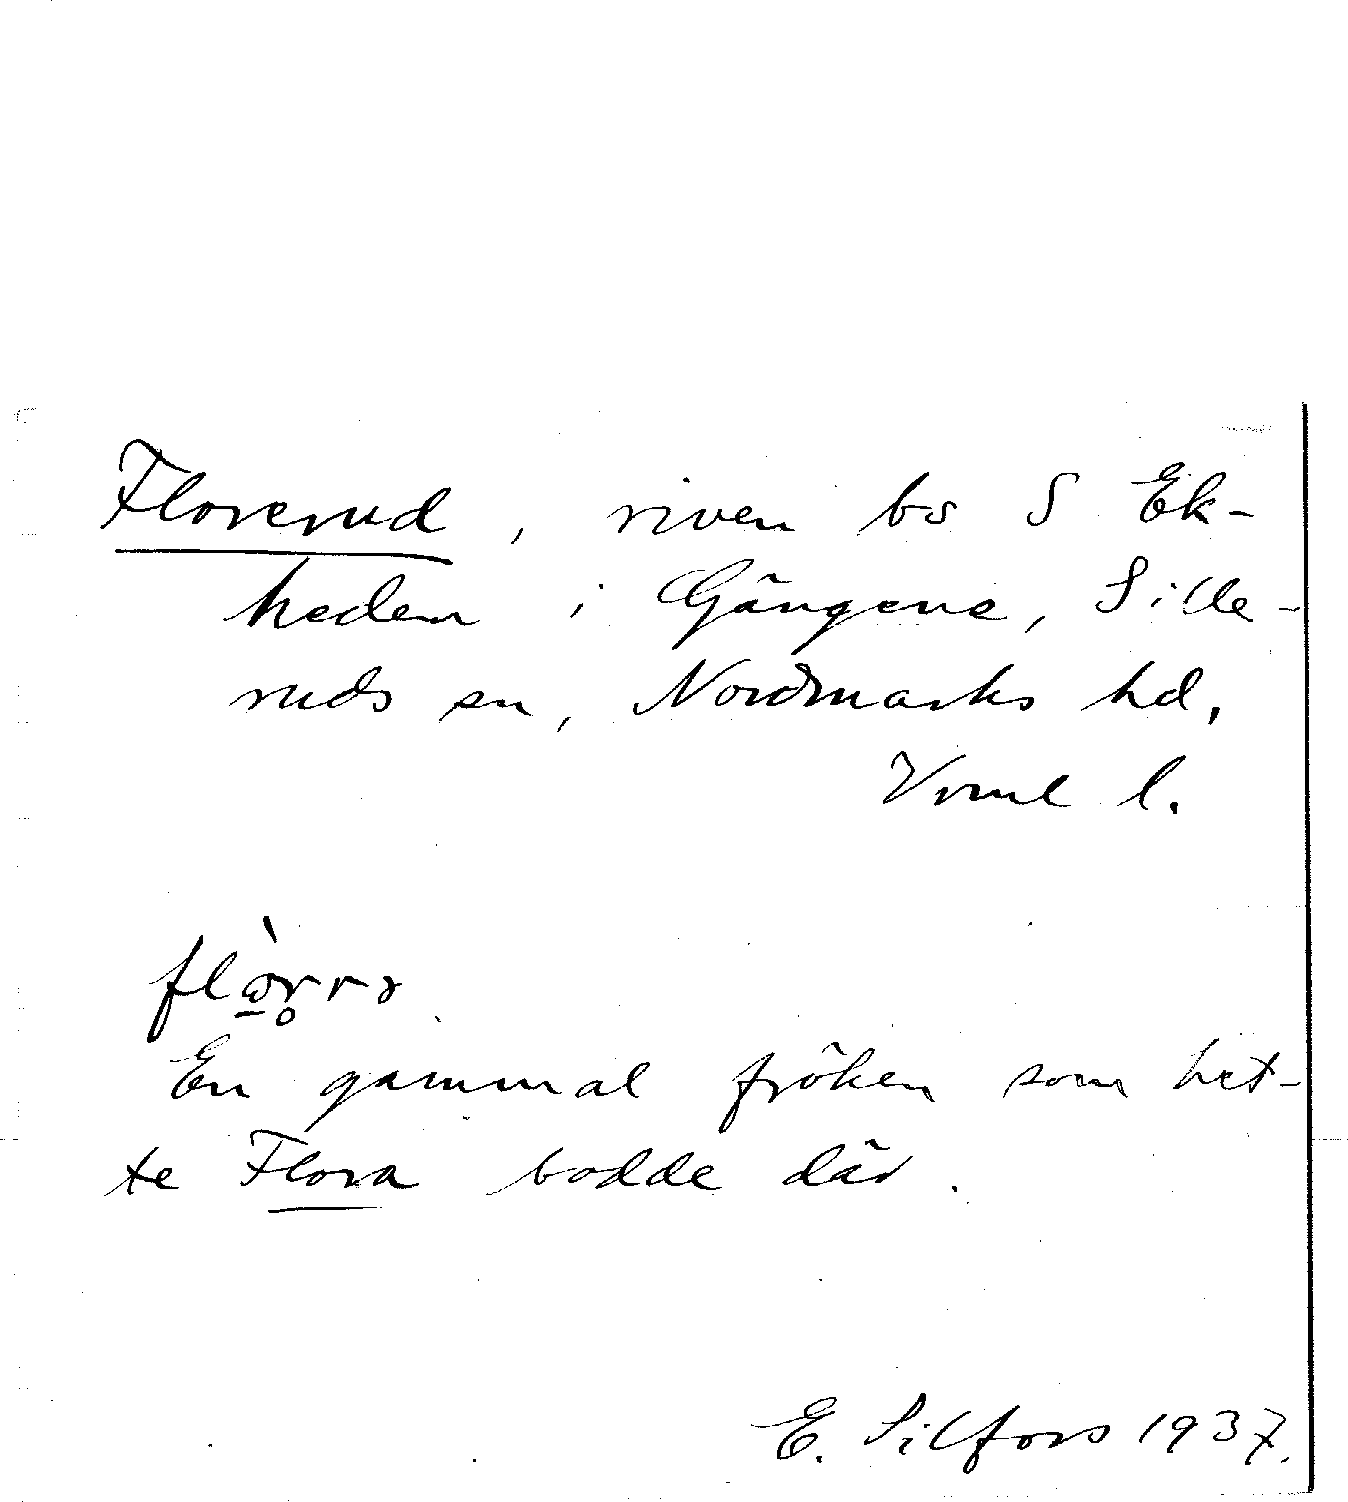 Florerud, riven bs S Ek-
heden i Gängene, Sille-
ruds sn, Nordmarks hd,
Vrml l.
En gammal fröken som het-
te Flora bodde där.
E. Silfors 1937.